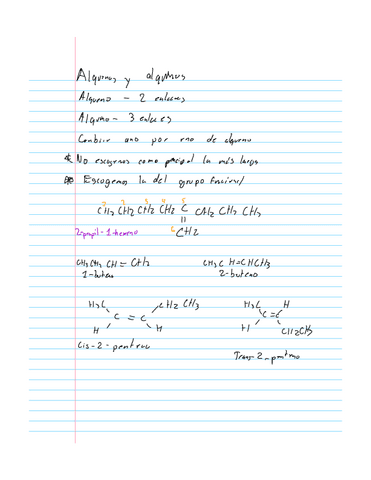 Alquenos y alquinos
Alqueno - 2 enlaces
Alquino - 3 enlaces
Cambiar uno por eno de alqueno
* No escogemos como principal la más larga
* Escogemos la del grupo funcional
CH3 CH2 CH2 CH2 C CH2 CH2 CH3
||
2-propil-1-hexeno CH2
CH3 CH2 CH = CH2 CH3 CH = CHCH3
1-buteno 2-buteno
H3C CH2 CH3 H3C H
C = C C = C
H H H CH2CH3
Cis-2-penteno Trans-2-penteno